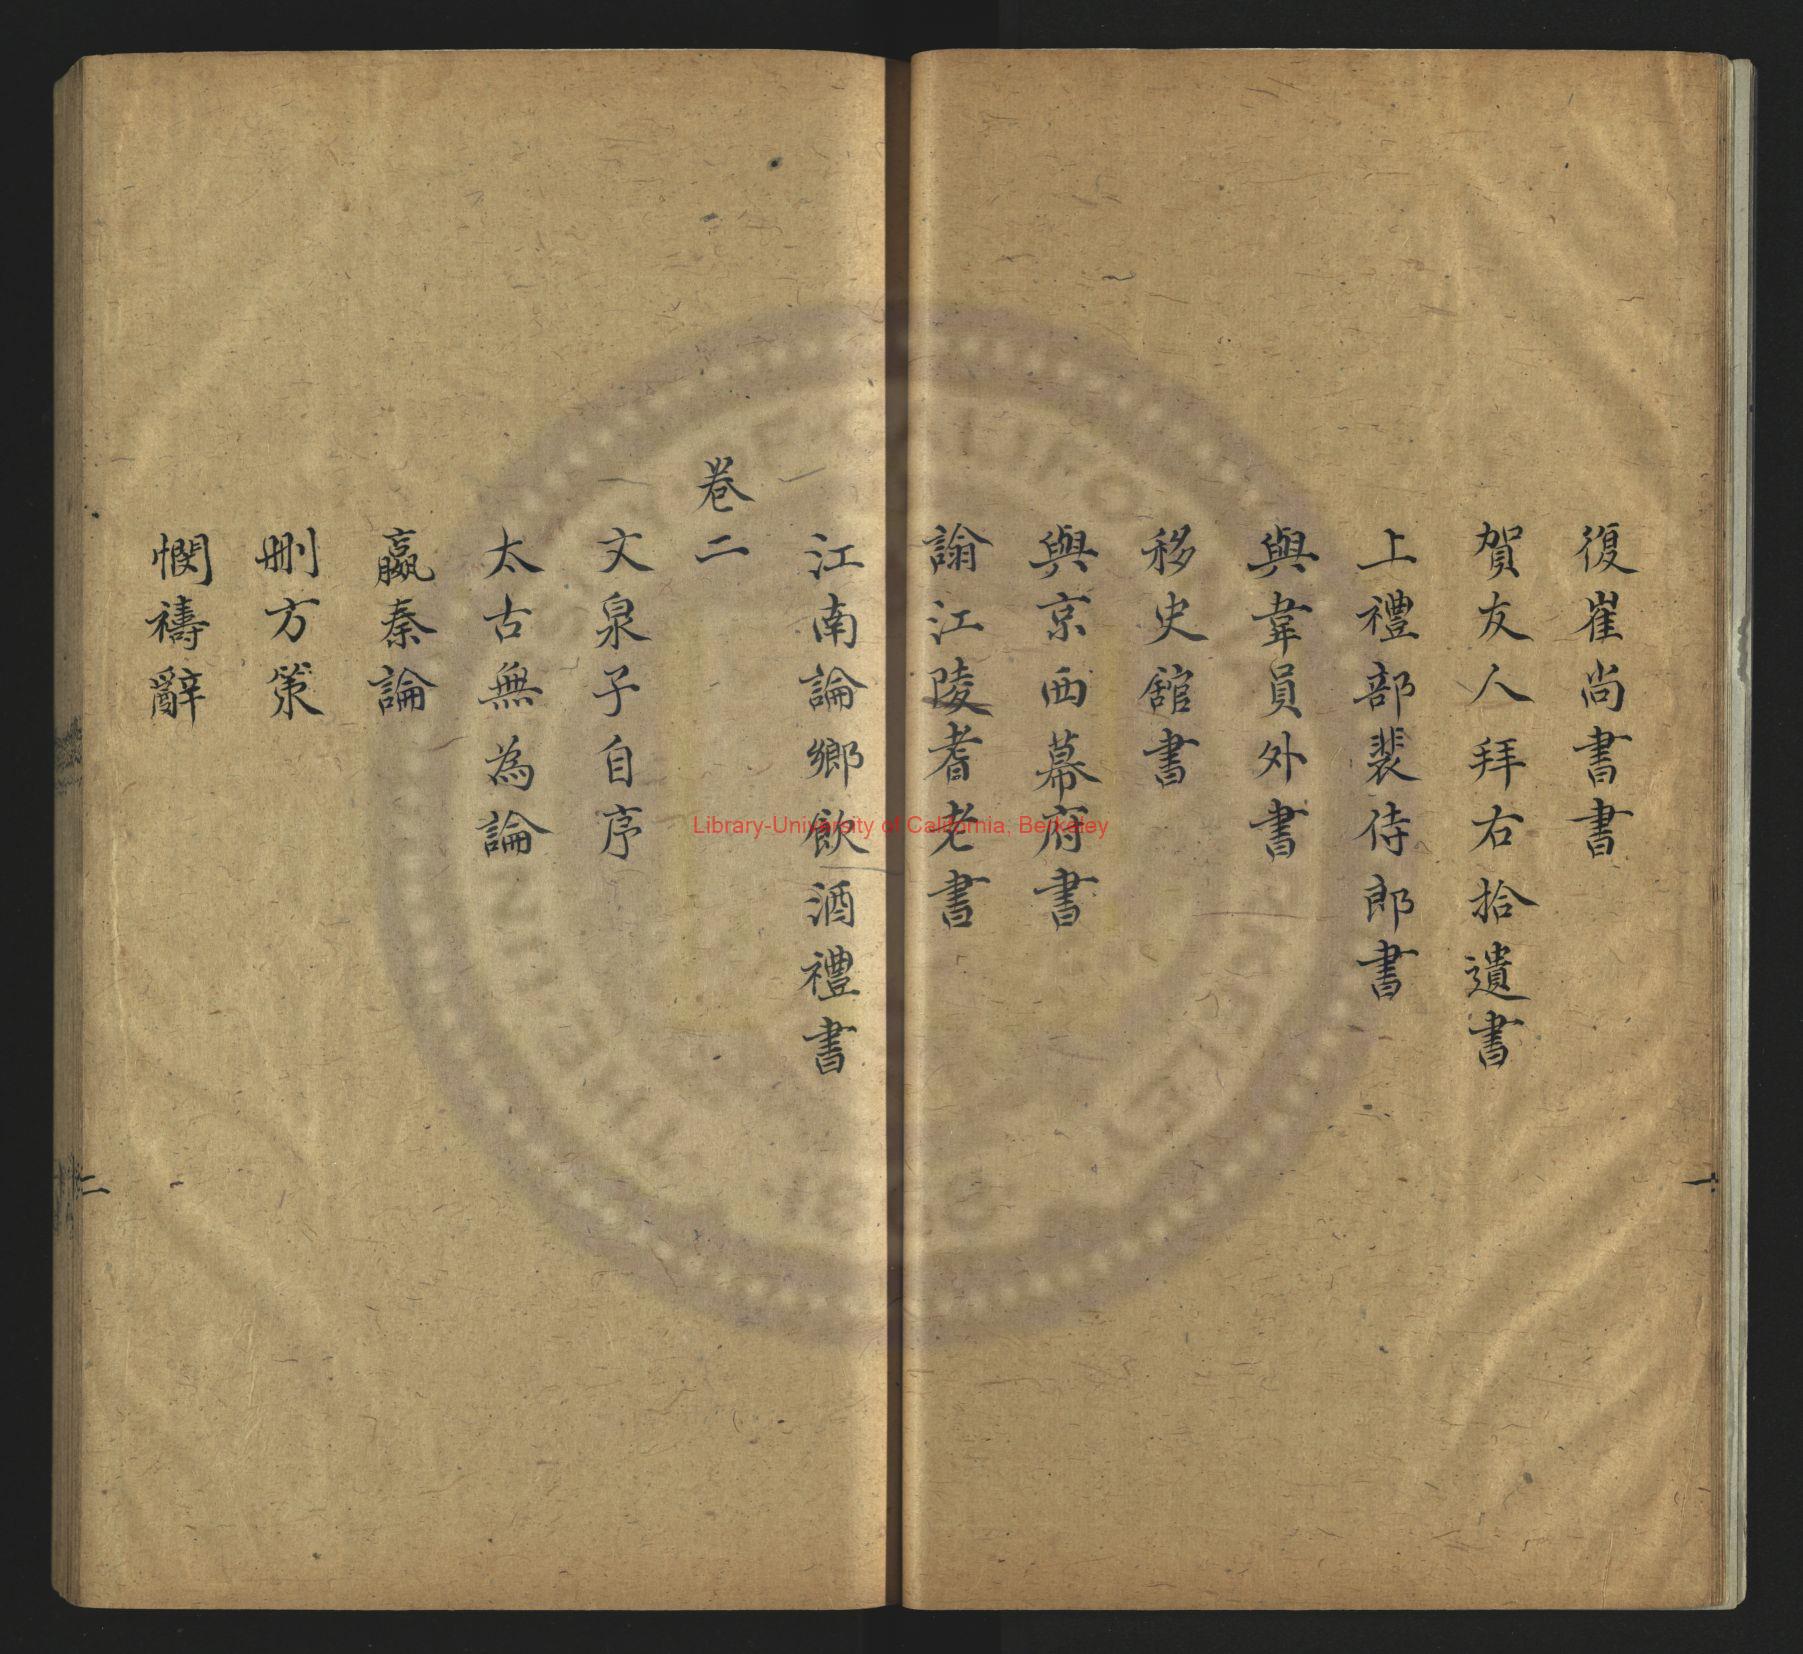 復崔尚書書
賀友人拜右拾遺書
上禮部裴侍郎書
與韋員外書
移史館書
與京西幕府書
諭江陵耆老書
江南論鄉飲酒禮書
卷二
文泉子自序
太古無為論
嬴秦論
刪方策
憫禱辭
一
二
Library-University of California, Berkeley